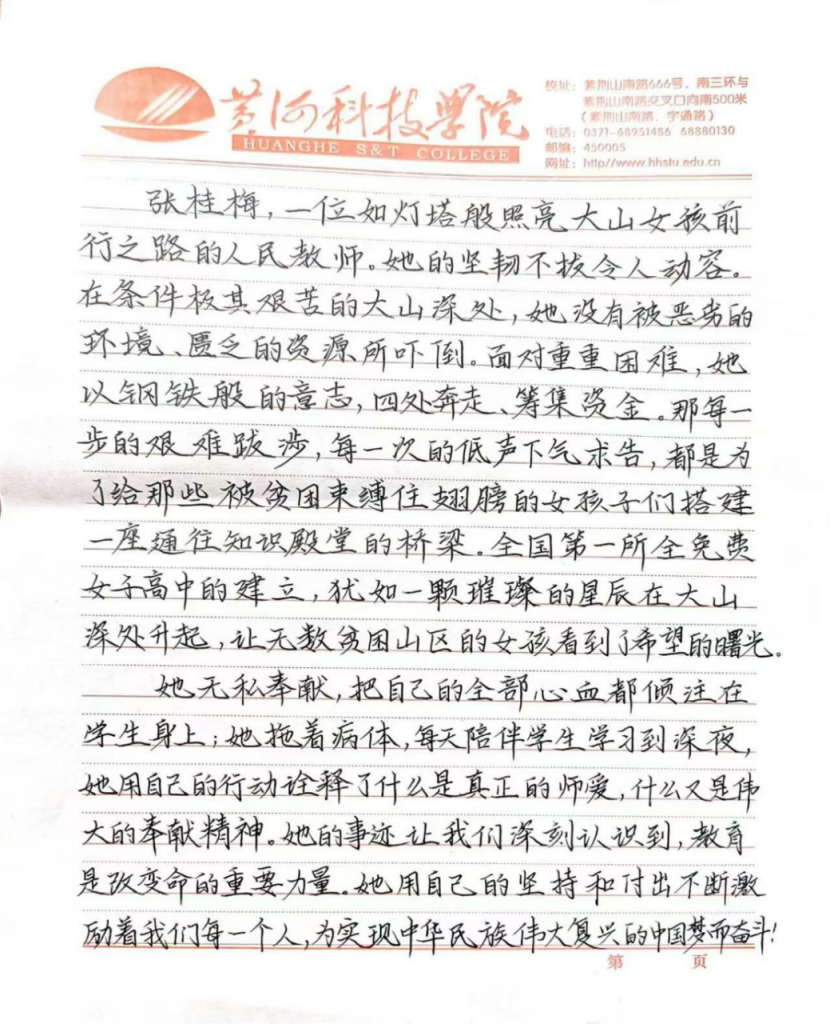 黄河科技学院
HUANGHE S&T COLLEGE
校址：紫荆山南路666号、南三环与
紫荆山南路交叉口向南500米
（紫荆山南路、宇通路）
电话：0371-68951486 68880130
邮编：450005
网址：http//www.hhstu.edu.cn
张桂梅，一位如灯塔般照亮大山女孩前
行之路的人民教师。她的坚韧不拔令人动容。
在条件极其艰苦的大山深处，她没有被恶劣的
环境、匮乏的资源所吓倒。面对重重困难，她
以钢铁般的意志，四处奔走、筹集资金。那每一
步的艰难跋涉，每一次的低声下气求告，都是为
了给那些被贫困束缚住翅膀的女孩子们搭建
一座通往知识殿堂的桥梁。全国第一所全免费
女子高中的建立，犹如一颗璀璨的星辰在大山
深处升起，让无数贫困山区的女孩看到了希望的曙光。
她无私奉献，把自己的全部心血都倾注在
学生身上；她拖着病体，每天陪伴学生学习到深夜，
她用自己的行动诠释了什么是真正的师爱，什么又是伟
大的奉献精神。她的事迹让我们深刻认识到，教育
是改变命的重要力量。她用自己的坚持和付出不断激
励着我们每一个人，为实现中华民族伟大复兴的中国梦而奋斗！
第 页